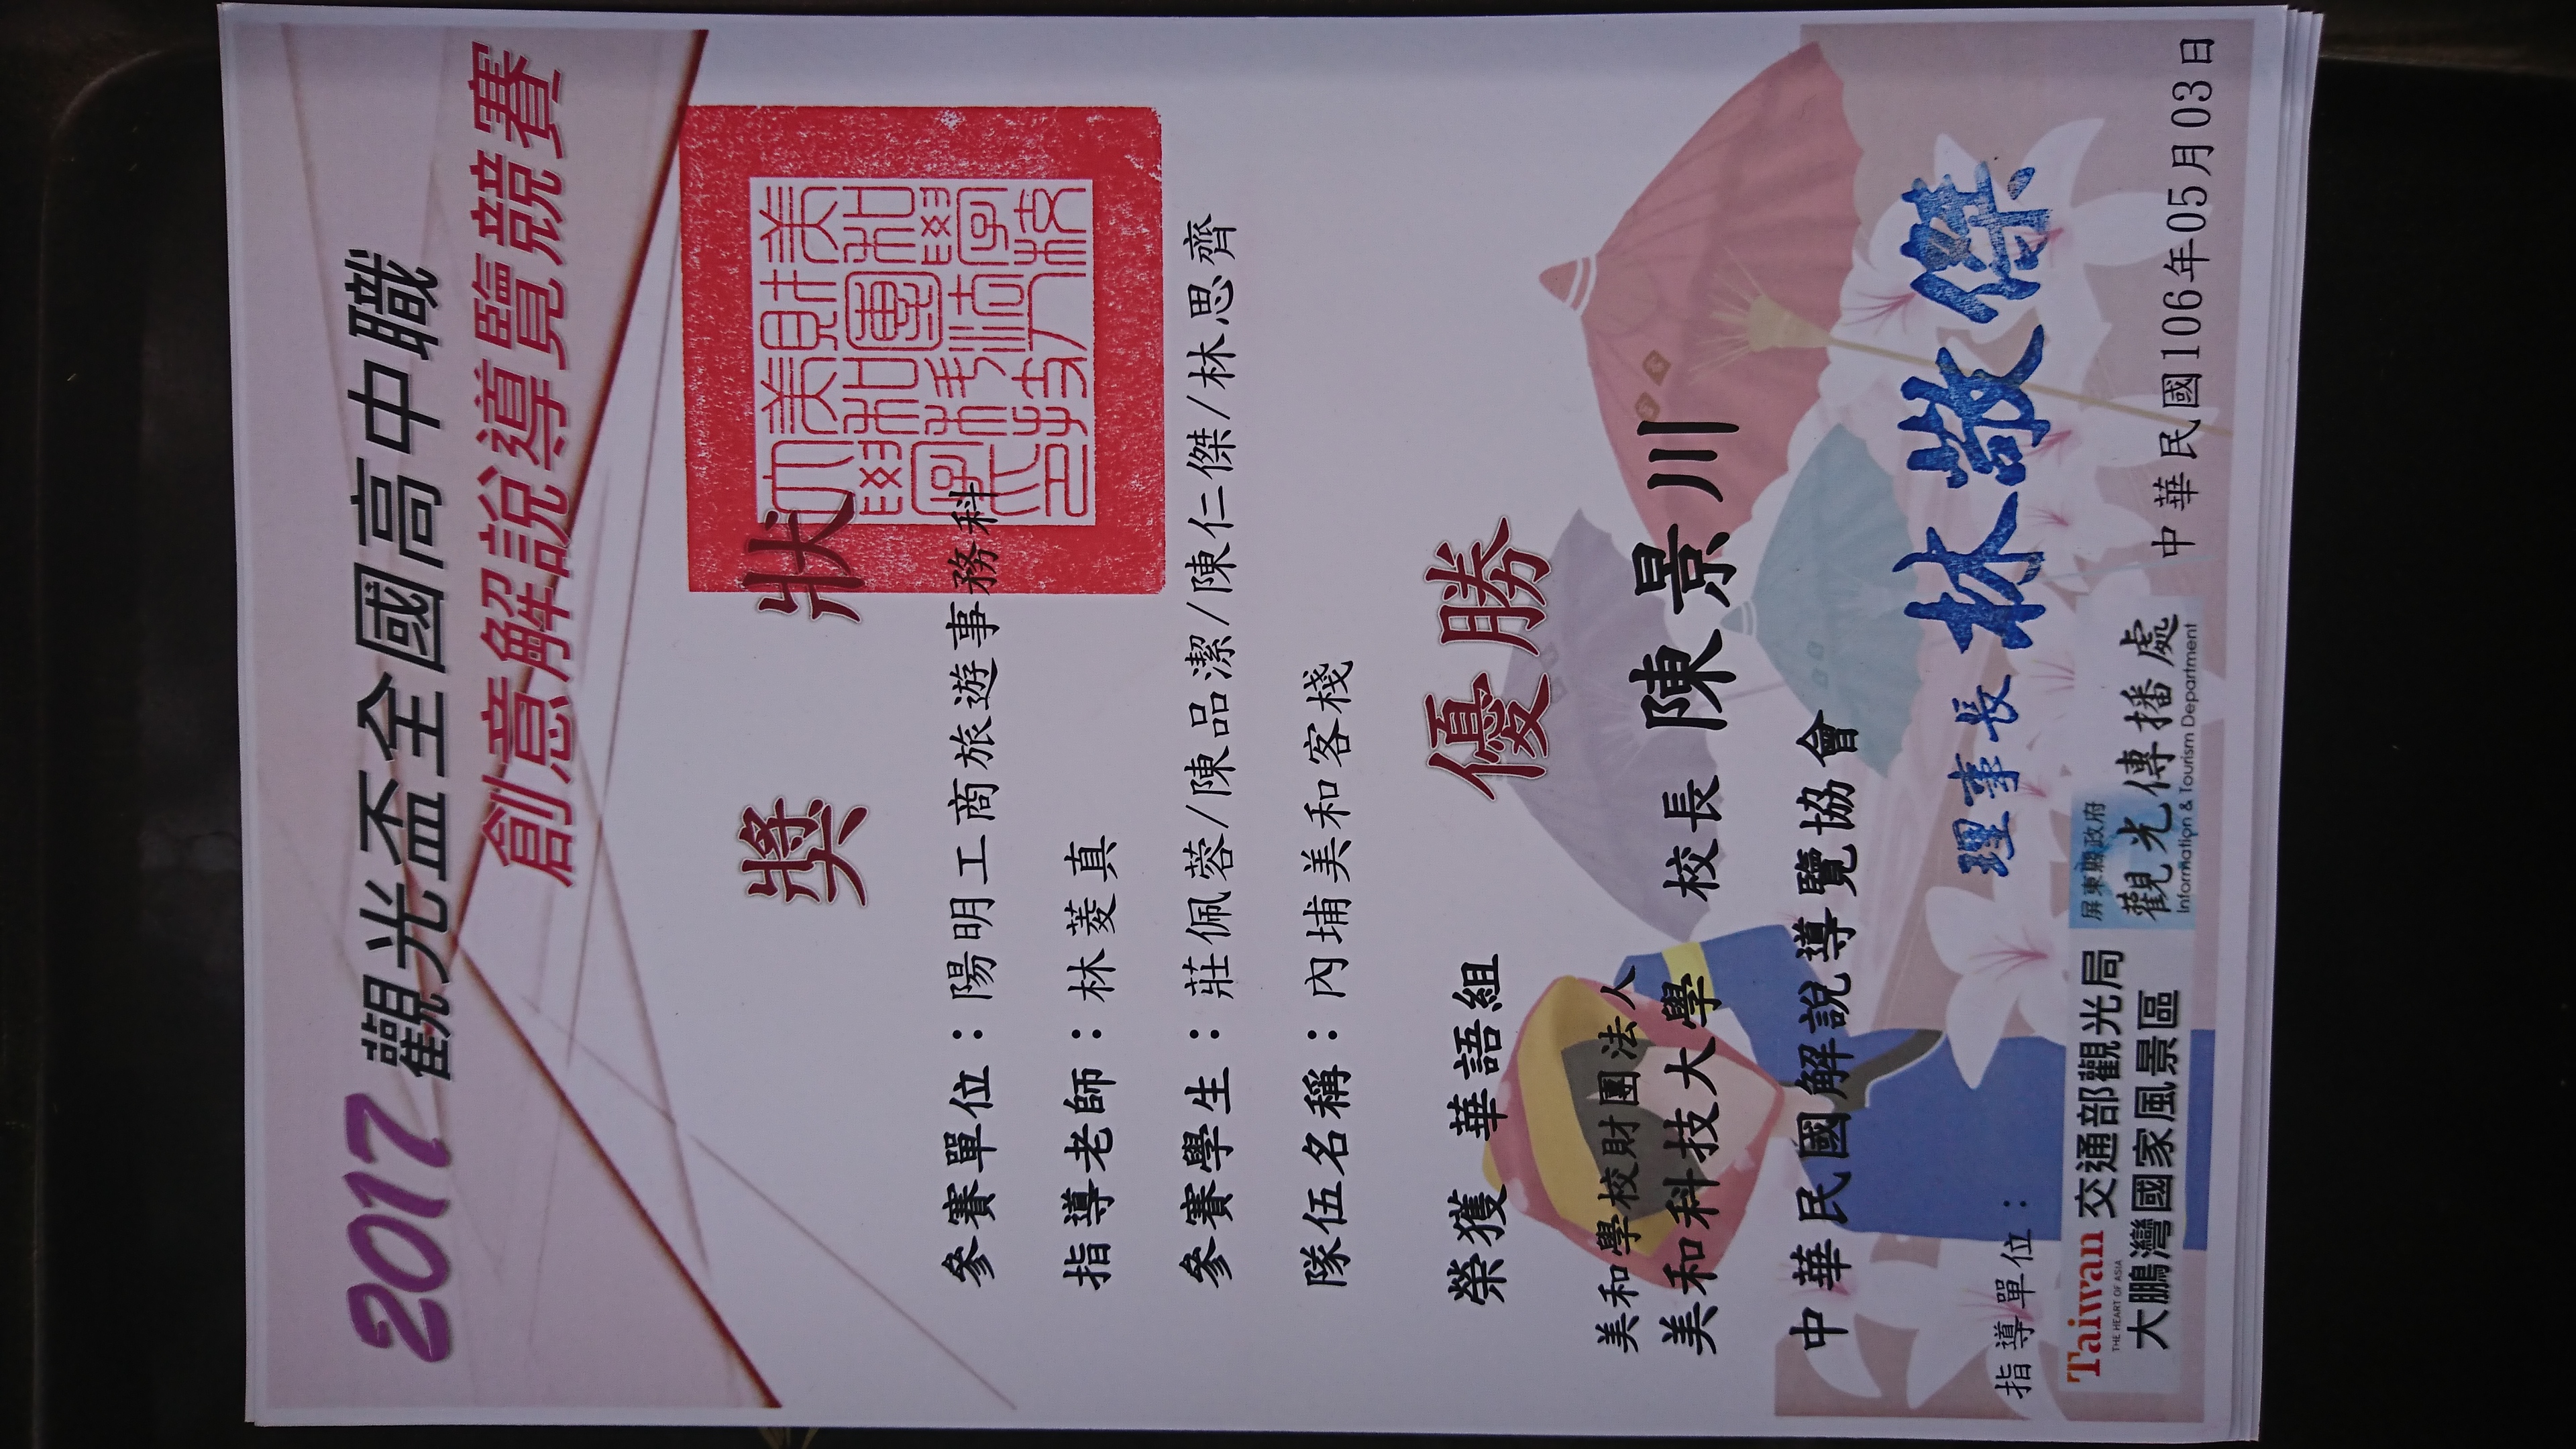 2017 觀光盃全國高中職
創意解說導覽競賽
獎狀
參賽單位：陽明工商旅遊事務科
指導老師：林菱真
參賽學生：莊佩蓉/陳品潔/陳仁傑/林思齊
隊伍名稱：內埔美和客棧
榮獲 華語組 優勝
美和學校財團法人
美和科技大學 校長 陳景川
中華民國解說導覽協會
理事長 林敬傑
指導單位：
Taiwan 交通部觀光局
THE HEART OF ASIA
大鵬灣國家風景區
屏東縣政府
觀光傳播處
Information & Tourism Department
中華民國106年05月03日